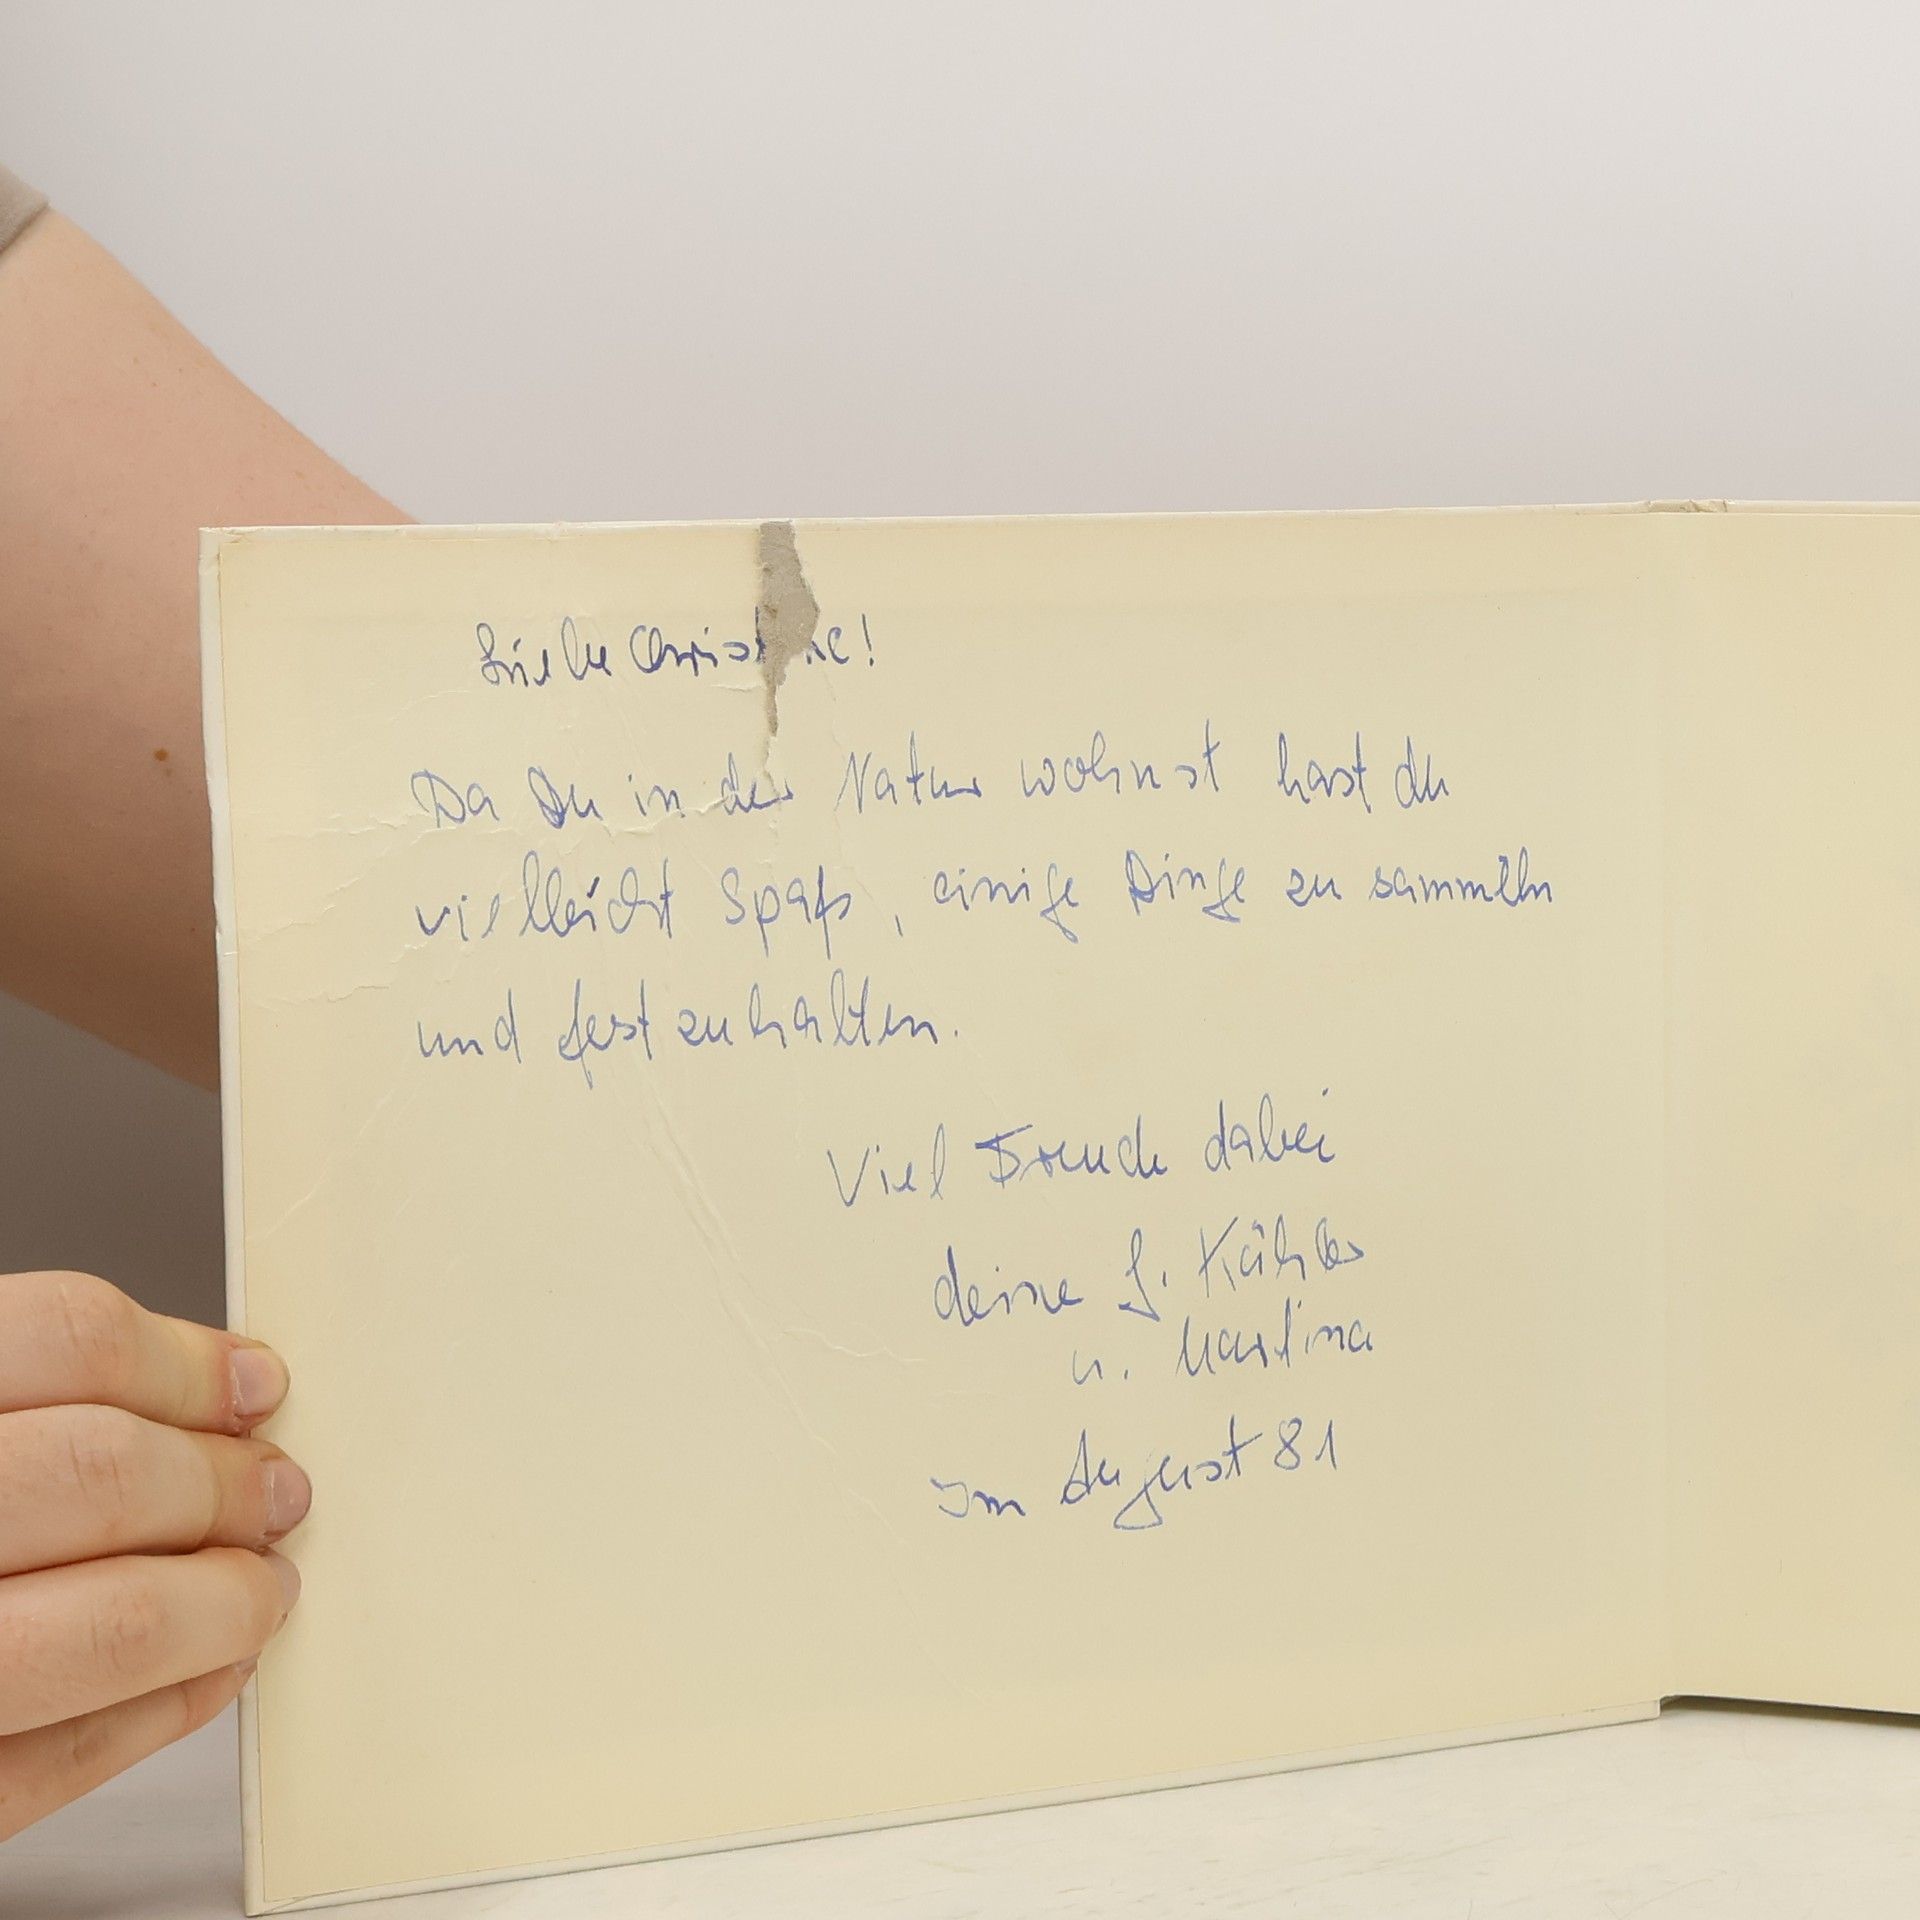 Liebe
Da Du in der Natur wohnst hast du
vielleicht Spaß, einige Dinge zu sammeln
und festzuhalten.
Viel Freude dabei
deine Kähler
u. Martina
Im August 81